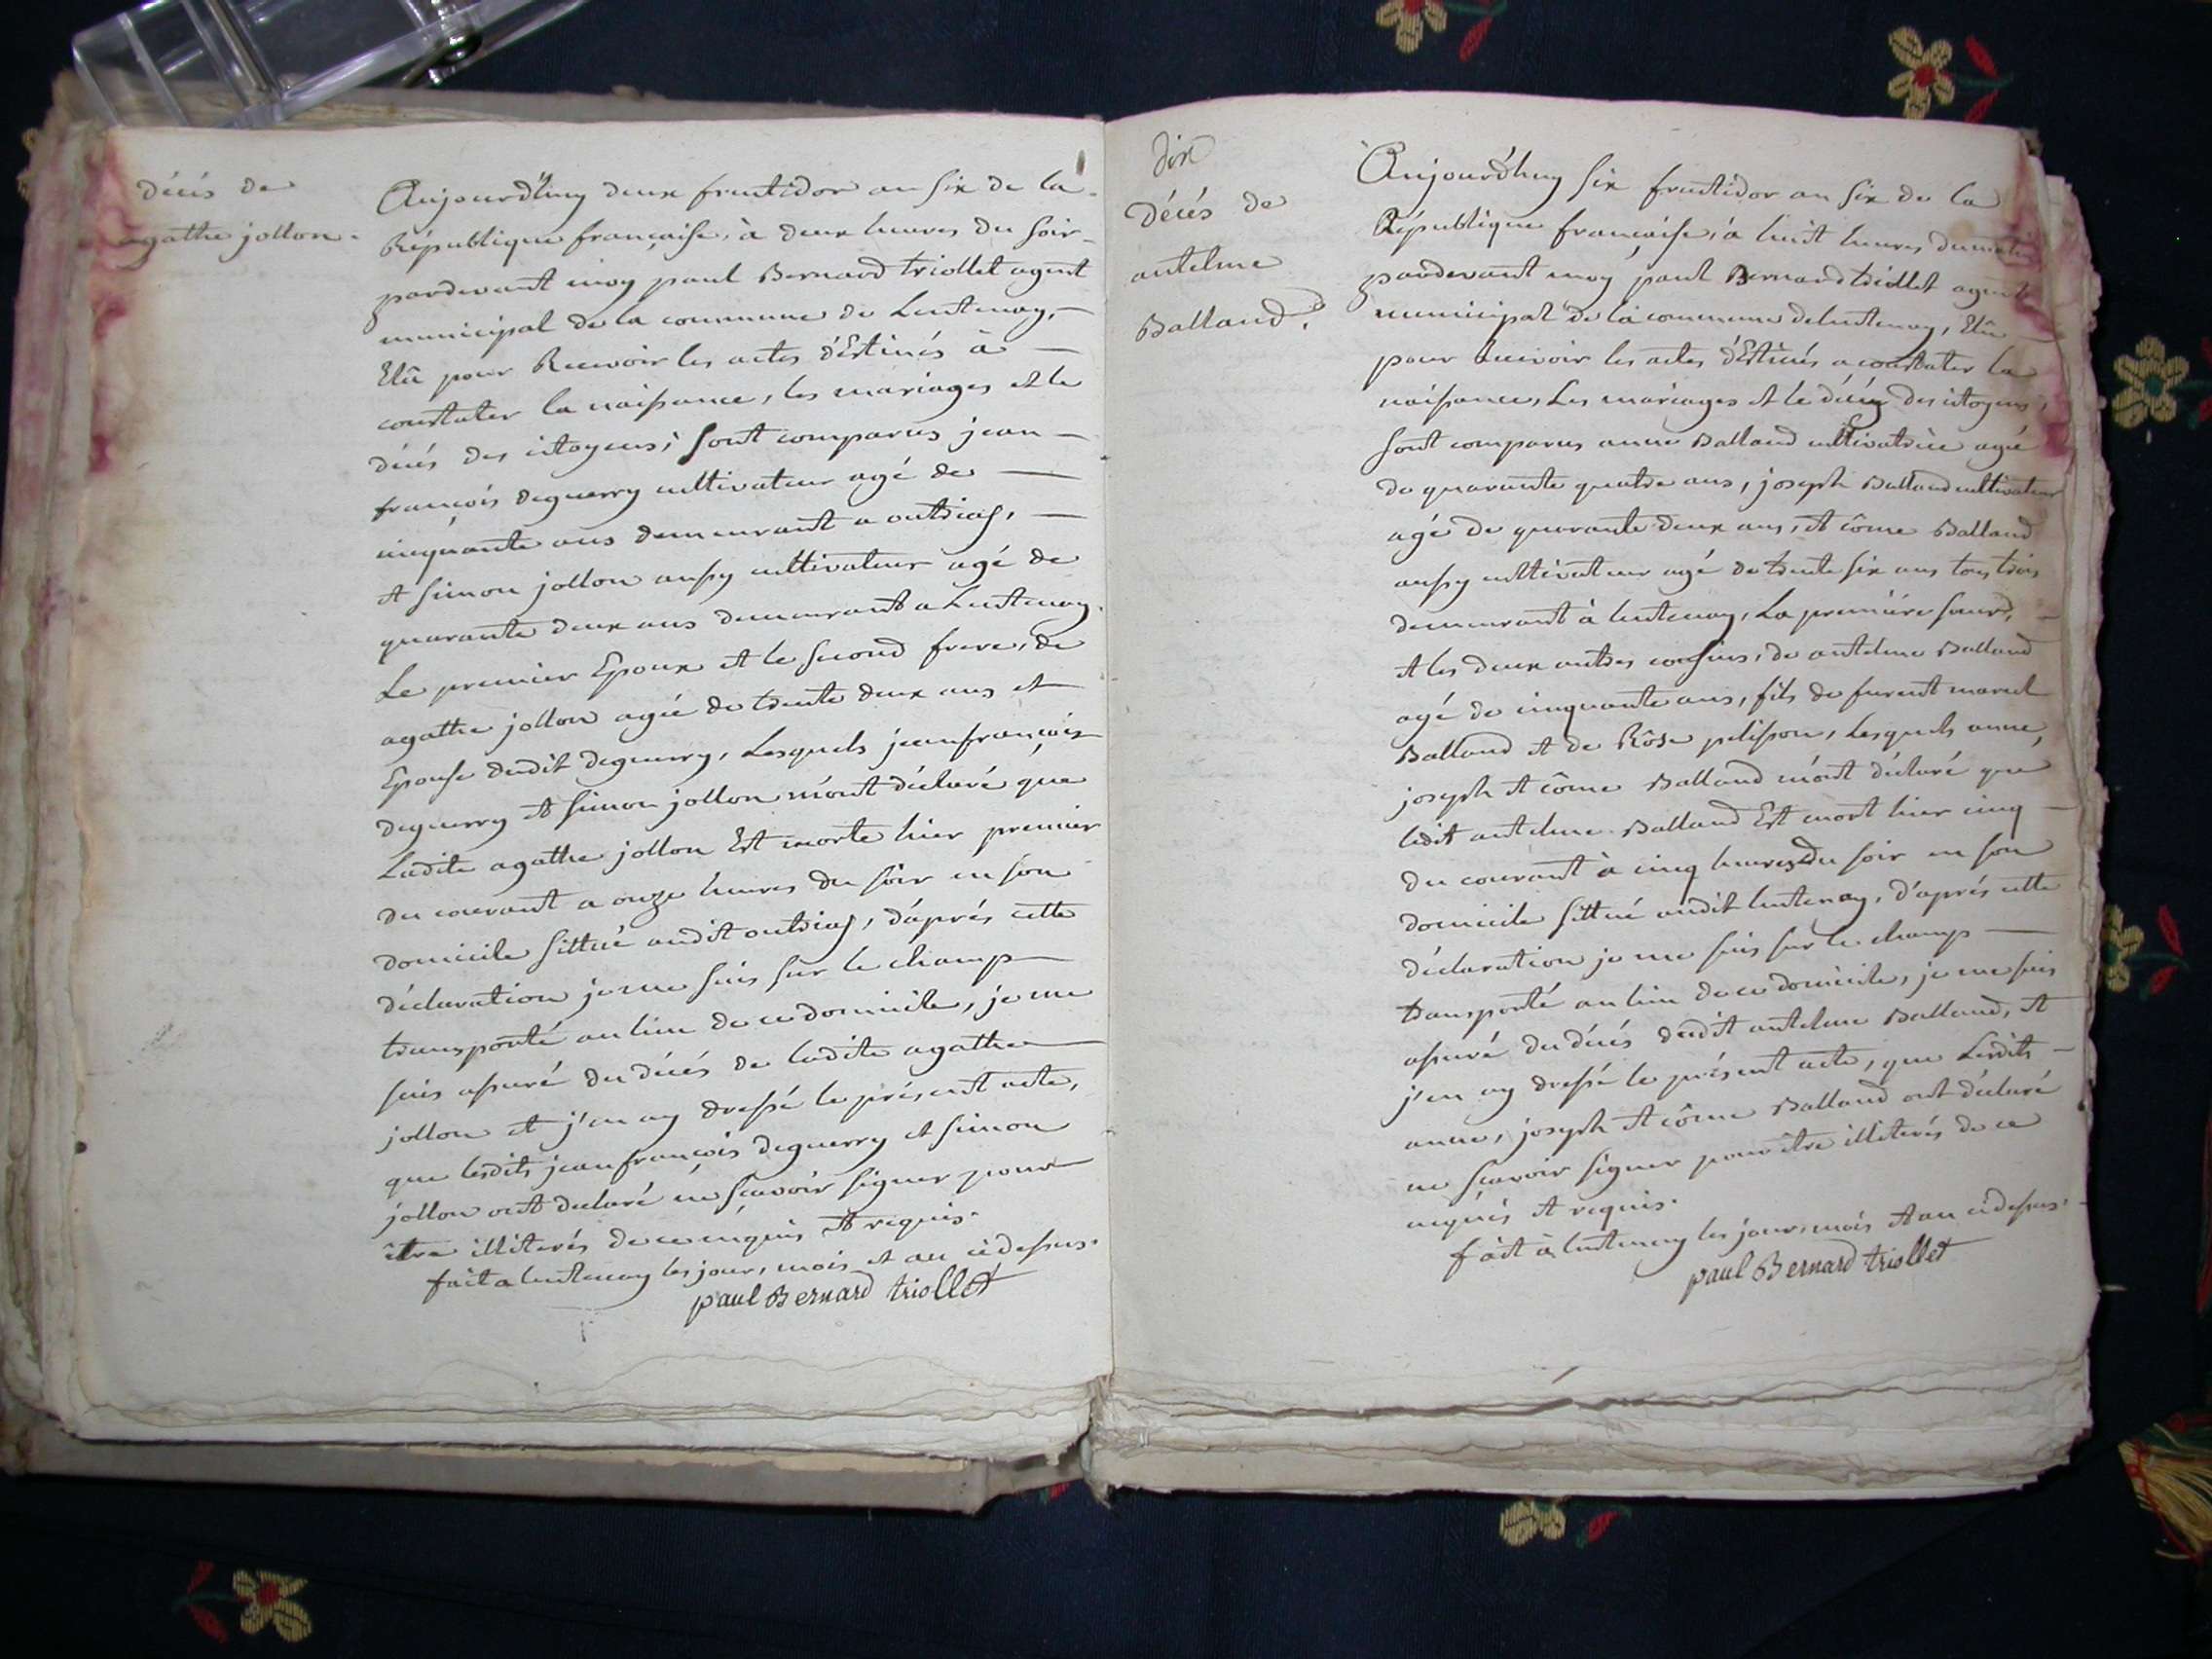 décés de
agathe jollon.
Aujourd'huy deux fructidor an six de la
République française, à deux heures du soir
pardevant moy paul Bernard triollet agent
municipal de la commune de Lentenay,
Elû pour Recevoir les actes d'Estinés à
constater la naissance, les mariages et le
décés des citoyens; sont comparus jean
françois deguerry cultivateur agé de
cinquante ans demeurant a outriaz,
et simon jollon aussy cultivateur agé de
quarante deux ans demeurant a Lentenay.
Le premier Epoux et le second frere, de
agathe jollon agée de trente deux ans et
Epouse dudit deguerry, Lesquels jean françois
deguerry et simon jollon m'ont déclaré que
Ladite agathe jollon Est morte hier premier
du courant a onze heures du soir en son
domicile sittué audit outriaz, d'aprés cette
déclaration je me suis sur le champ
transporté au lieu de ce domicile, je me
suis assuré du décés de ladite agathe
jollon et j'en ay dressé le présent acte,
que lesdits jean françois deguerry et simon
jollon ont declaré ne sçavoir signer pour
être illiterés de ce enquis et requis.
fait a lentenay les jour, mois et an cidessus.
paul Bernard triollet
dix
décés de
antelme
Balland.
Aujourd'huy six fructidor an six de la
République française, à huit heures du matin
pardevant moy paul Bernard triollet agent
municipal de la commune de lentenay, Elû
pour recevoir les actes d'Estinés a constater la
naissance, Les mariages et le décés des citoyens,
sont comparus anne Balland cultivatrice agée
de quarante quatre ans, joseph Balland cultivateur
agé de quarante deux ans, et côme Balland
aussy cultivateur agé de trente six ans tous trois
demeurant à lentenay, La premiére soeur,
et les deux autres cousins, de antelme Balland
agé de cinquante ans, fils de furent marcel
Balland et de Rôse pelisson, Lesquels anne,
joseph et côme Balland m'ont déclaré que
ledit antelme Balland Est mort hier cinq
du courant à cinq heures du soir en son
domicile sittué audit lentenay, d'aprés cette
déclaration je me suis sur le champ
transporté au lieu de ce domicile, je me suis
assuré du décés dudit antelme Balland, et
j'en ay dressé le présent acte, que Lesdits
anne, joseph et côme Balland ont déclaré
ne sçavoir signer pour être illiterés de ce
enquis et requis.
fait à lentenay les jour, mois et an cidessus.
paul Bernard triollet